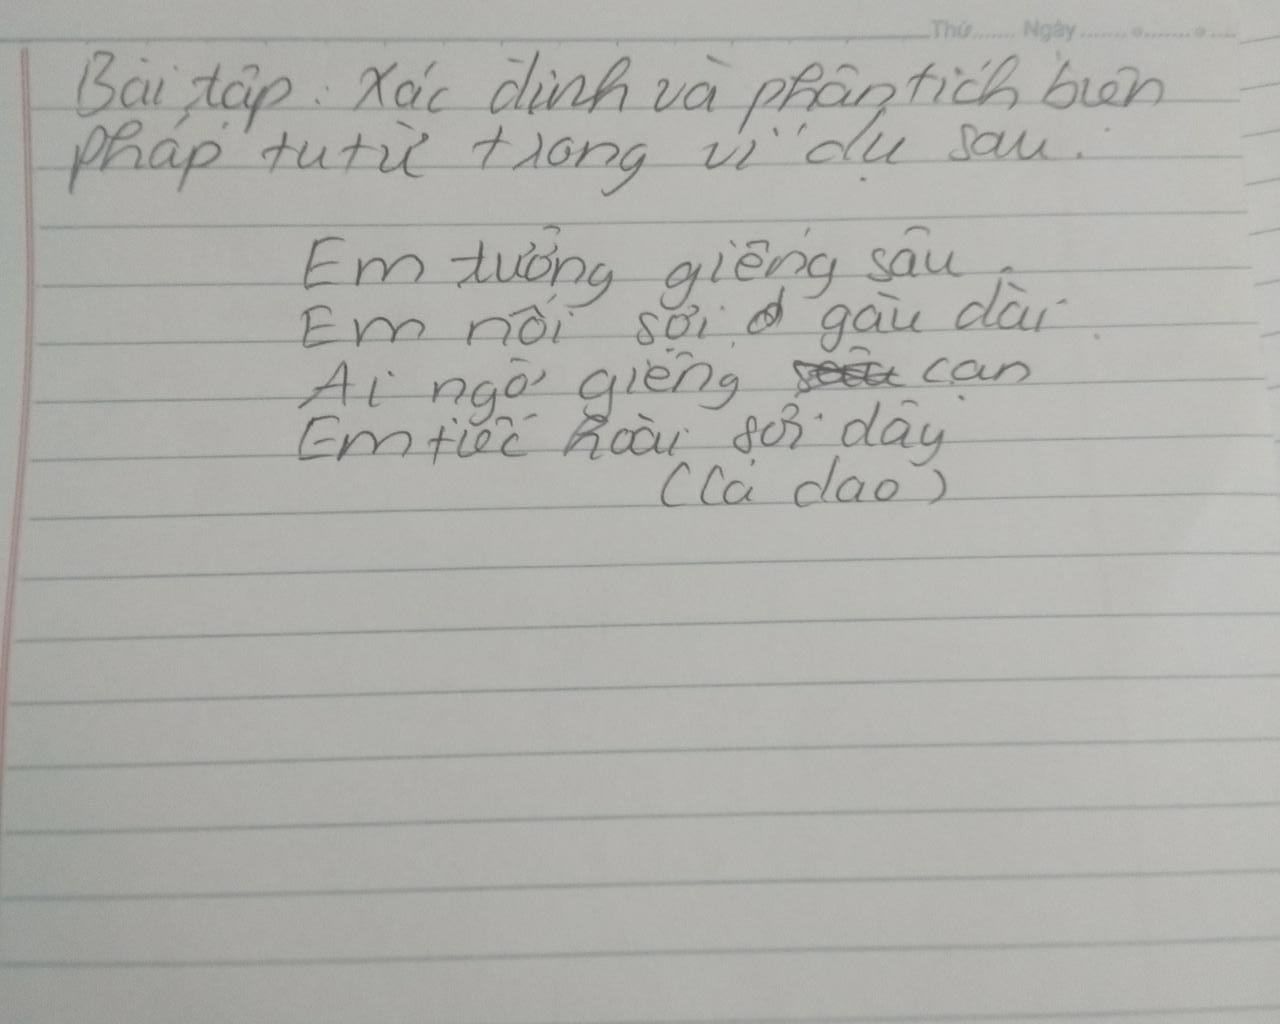 Thứ....... Ngày ........................
Bài tập: Xác định và phân tích biện
pháp tu từ trong ví dụ sau.
Em tưởng giếng sâu
Em nối sợi gàu dài
Ai ngờ giếng cạn
Em tiếc hoài sợi dây
(Ca dao)